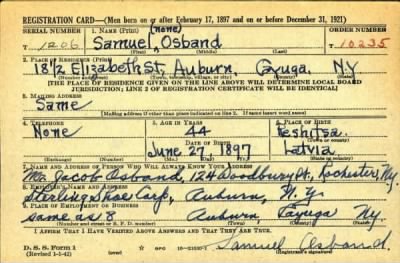 REGISTRATION CARD—(Men born on or after February 17, 1897 and on or before December 31, 1921)
SERIAL NUMBER 1. NAME (Print) (none) ORDER NUMBER
T 1206 Samuel, Osband T 10235
(First) (Middle) (Last)
2. PLACE OF RESIDENCE (Print)
18½ Elizabeth St. Auburn, Cayuga, N.Y
(Number and street) (Town, township, village, or city) (County) (State)
[THE PLACE OF RESIDENCE GIVEN ON THE LINE ABOVE WILL DETERMINE LOCAL BOARD
JURISDICTION; LINE 2 OF REGISTRATION CERTIFICATE WILL BE IDENTICAL]
3. MAILING ADDRESS
Same
[Mailing address if other than place indicated on line 2. If same insert word same]
4. TELEPHONE 5. AGE IN YEARS 6. PLACE OF BIRTH
None 44
DATE OF BIRTH (Town or county)
June 27, 1897 Latvia
(Exchange) (Number) (Mo.) (Day) (Yr.) (State or country)
7. NAME AND ADDRESS OF PERSON WHO WILL ALWAYS KNOW YOUR ADDRESS
Mr Jacob Osband, 124 Woodbury St, Rochester, Ny.
8. EMPLOYER'S NAME AND ADDRESS
Sterling Shoe Corp, Auburn, N. Y.
9. PLACE OF EMPLOYMENT OR BUSINESS
same as 8 Auburn, Cayuga Ny.
(Number and street or R. F. D. number) (Town) (County) (State)
I AFFIRM THAT I HAVE VERIFIED ABOVE ANSWERS AND THAT THEY ARE TRUE.
D. S. S. Form 1
(Revised 1-1-42) GPO Samuel Osband.
(Registrant's signature)